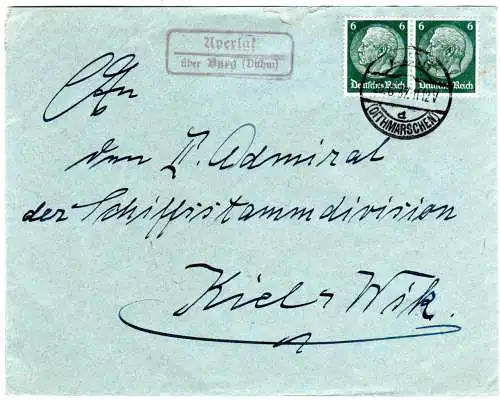 Averlak
über Burg (Dithm)
6 6
Deutsches Reich Deutsches Reich
(DITHMARSCHEN)
d
An
den II. Admiral
der Schiffsstammdivision
Kiel-Wik.